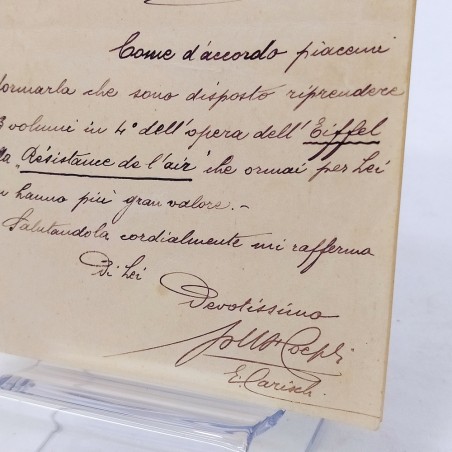 Come d'accordo piacemi
formarla che sono disposto riprendere
3 volumi in 4° dell'opera dell'Eiffel
la "Résistance de l'air" che ormai per Lei
n hanno più gran valore.-
Salutandola cordialmente mi raffermo
Di Lei
Devotissimo
Hoepli
E. Carisch.